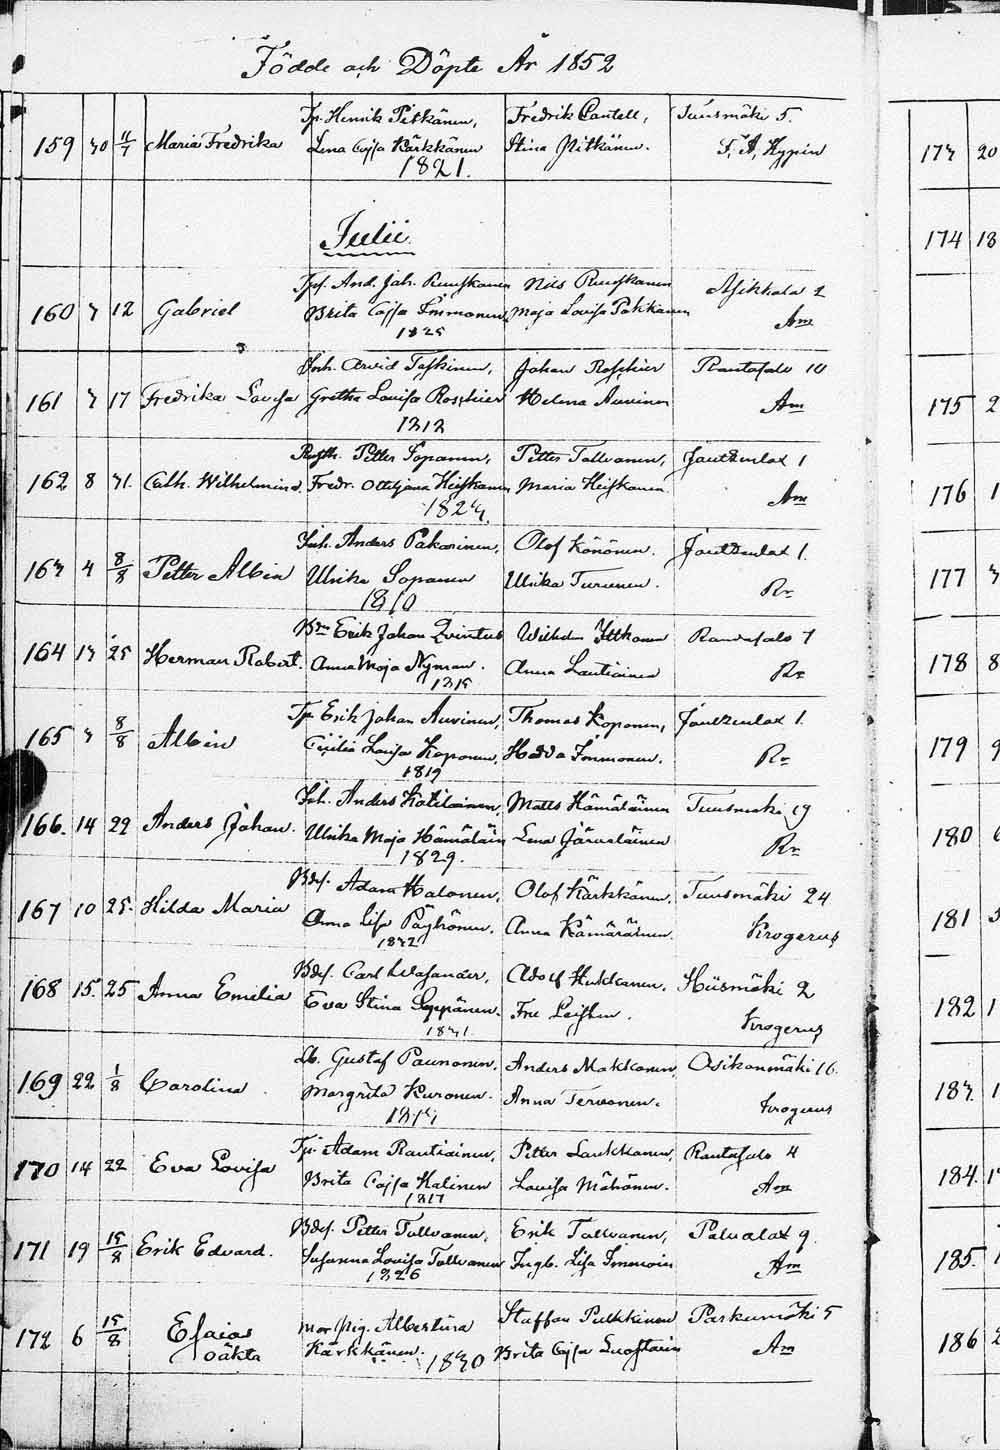 Födde och Döpte År 1852
159 30 11/7 Maria Fredrika Tp. Henrik Pitkänen, Fredrik Cantell, Tuusmäki 5.
Lena Cajsa Kärkkänen Stina Pitkänen. F. A. Hypén
1821.
Julii.
160 3 12 Gabriel Tpf. And. Joh. Ruuskanen Nils Ruuskanen Asikkala 2
Brita Cajsa Immonen, Maja Lovisa Pakkanen Am
1825
161 3 17 Fredrika Lovisa Inh. Arvid Taskinen, Johan Roschier Rantasalo 10
Gretha Lovisa Roschier Helena Auvinen Am
1812
162 8 31. Cath. Wilhelmina. Petter Sopanen, Petter Tallvanen, Jautzenlax 1
Fredr. Ottiljana Heiskanen Maria Heiskanen Am
1823.
163 4 8/8 Petter Albin Inh. Anders Pakarinen, Olof Könönen. Jautzenlax 1.
Ulrika Sopanen Ulrika Turunen. Rn
1810
164 13 25 Herman Robert. Erik Johan Qvintus Wilhelm Ittkonen Rantasalo 7
Anna Maja Nyman. Anna Lautiainen Rn
1815
165 3 8/8 Albin Tp. Erik Johan Auvinen, Thomas Koponen, Jautzenlax 1.
Cicilia Lovisa Koponen, Hedda Immonen. Rn
1819
166. 14 29 Anders Johan. Inh. Anders Katilainen, Matts Hämäläinen Tuusmäki 19
Ulrika Maja Hämäläin Lena Järveläinen Rn
1829.
167 10 25. Hilda Maria Bdsf. Adam Halonen, Olof Kärkkänen, Tuusmäki 24
Anna Lisa Päyhönen. Anna Kämäräinen. Krogerus
1832
168 15. 25 Anna Emelia Bdsf. Carl Adolf Hukkanen, Hiismäki 2
Eva Stina Seppänen. Fru Krogerus
1831.
169 22 1/8 Carolina. Lb. Gustaf Paunonen, Anders Makkonen, Osikonmäki 16.
Margreta Kuronen. Anna Tervonen. Krogerus
1813
170 14 22 Eva Lovisa Tp. Adam Rautiainen, Petter Laukkanen, Rantasalo 4
Brita Cajsa Kalinen Lovisa Mähönen. Am
1817
171 19 15/8 Erik Edvard. Bdsf. Petter Tallvanen, Erik Tallvanen, Palvalax 9.
Susanna Lovisa Tallvanen Ingb. Lisa Immoin Am
1826
172 6 15/8 Esaias Mor pig. Albertina Staffan Pulkkinen Parkumäki 5
oäkta Kärkkänen. 1830 Brita Cajsa Am
173 20
174 18
175 2
176 1
177 3
178 8
179 9
180 6
181 5
182 1
183. 1
184. 1
185. 1
186 2